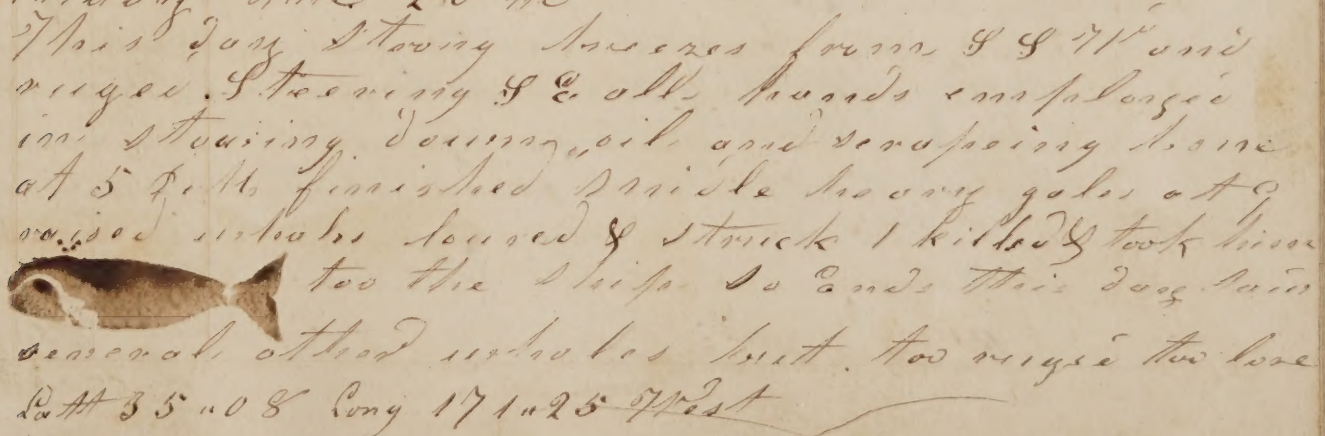 This day Strong breezes from S S W and
ruged Steering S E all hands employed
in stowing down oil and scrapeing bone
at 5 finished Midle heavy gales at 9
raised whales loured & struck 1 killed & took him
too the Ship So Ends this day saw
several other whales but too ruged too lore
Latt 35 " 08 Long 171 " 25 West